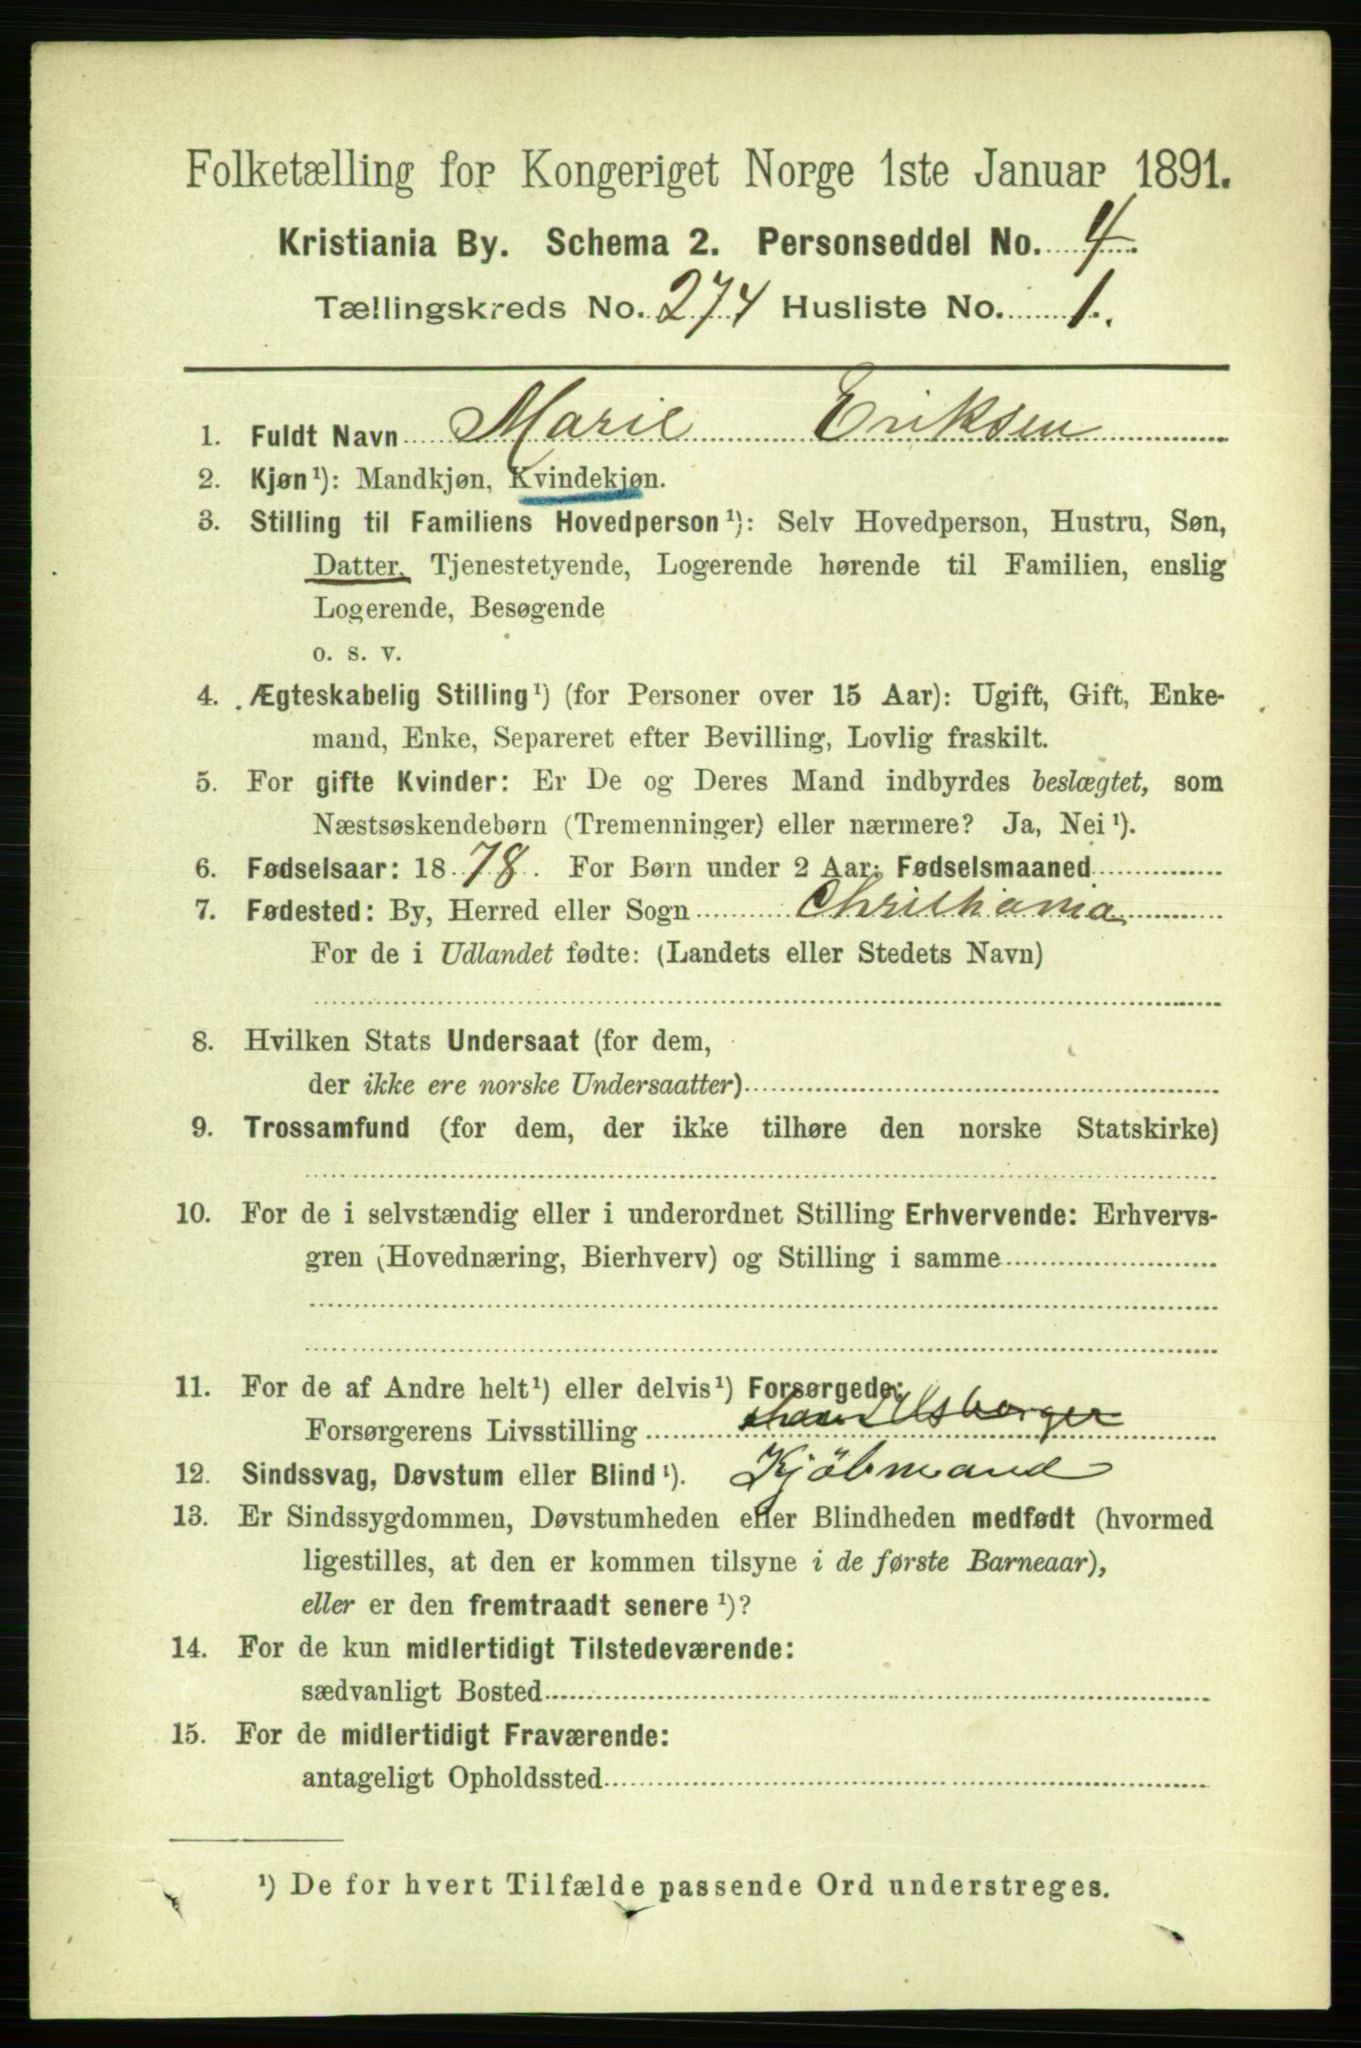 Folketælling for Kongeriget Norge 1ste Januar 1891.
Kristiania By. Schema 2. Personseddel No. 4.
Tællingskreds No. 274 Husliste No. 1.
1. Fuldt Navn Marie Eriksen
2. Kjøn¹): Mandkjøn, Kvindekjøn.
3. Stilling til Familiens Hovedperson¹): Selv Hovedperson, Hustru, Søn,
Datter, Tjenestetyende, Logerende hørende til Familien, enslig
Logerende, Besøgende
o. s. v.
4. Ægteskabelig Stilling¹) (for Personer over 15 Aar): Ugift, Gift, Enke-
mand, Enke, Separeret efter Bevilling, Lovlig fraskilt.
5. For gifte Kvinder: Er De og Deres Mand indbyrdes beslægtet, som
Næstsøskendebørn (Tremenninger) eller nærmere? Ja, Nei¹).
6. Fødselsaar: 1878. For Børn under 2 Aar: Fødselsmaaned
7. Fødested: By, Herred eller Sogn Christiania
For de i Udlandet fødte: (Landets eller Stedets Navn)
8. Hvilken Stats Undersaat (for dem,
der ikke ere norske Undersaatter)
9. Trossamfund (for dem, der ikke tilhøre den norske Statskirke)
10. For de i selvstændig eller i underordnet Stilling Erhvervende: Erhvervs-
gren (Hovednæring, Bierhverv) og Stilling i samme
11. For de af Andre helt¹) eller delvis¹) Forsørgede:
Forsørgerens Livsstilling
12. Sindssvag, Døvstum eller Blind¹). Kjöbmand
13. Er Sindssygdommen, Døvstumheden eller Blindheden medfødt (hvormed
ligestilles, at den er kommen tilsyne i de første Barneaar),
eller er den fremtraadt senere¹)?
14. For de kun midlertidigt Tilstedeværende:
sædvanligt Bosted
15. For de midlertidigt Fraværende:
antageligt Opholdssted
¹) De for hvert Tilfælde passende Ord understreges.